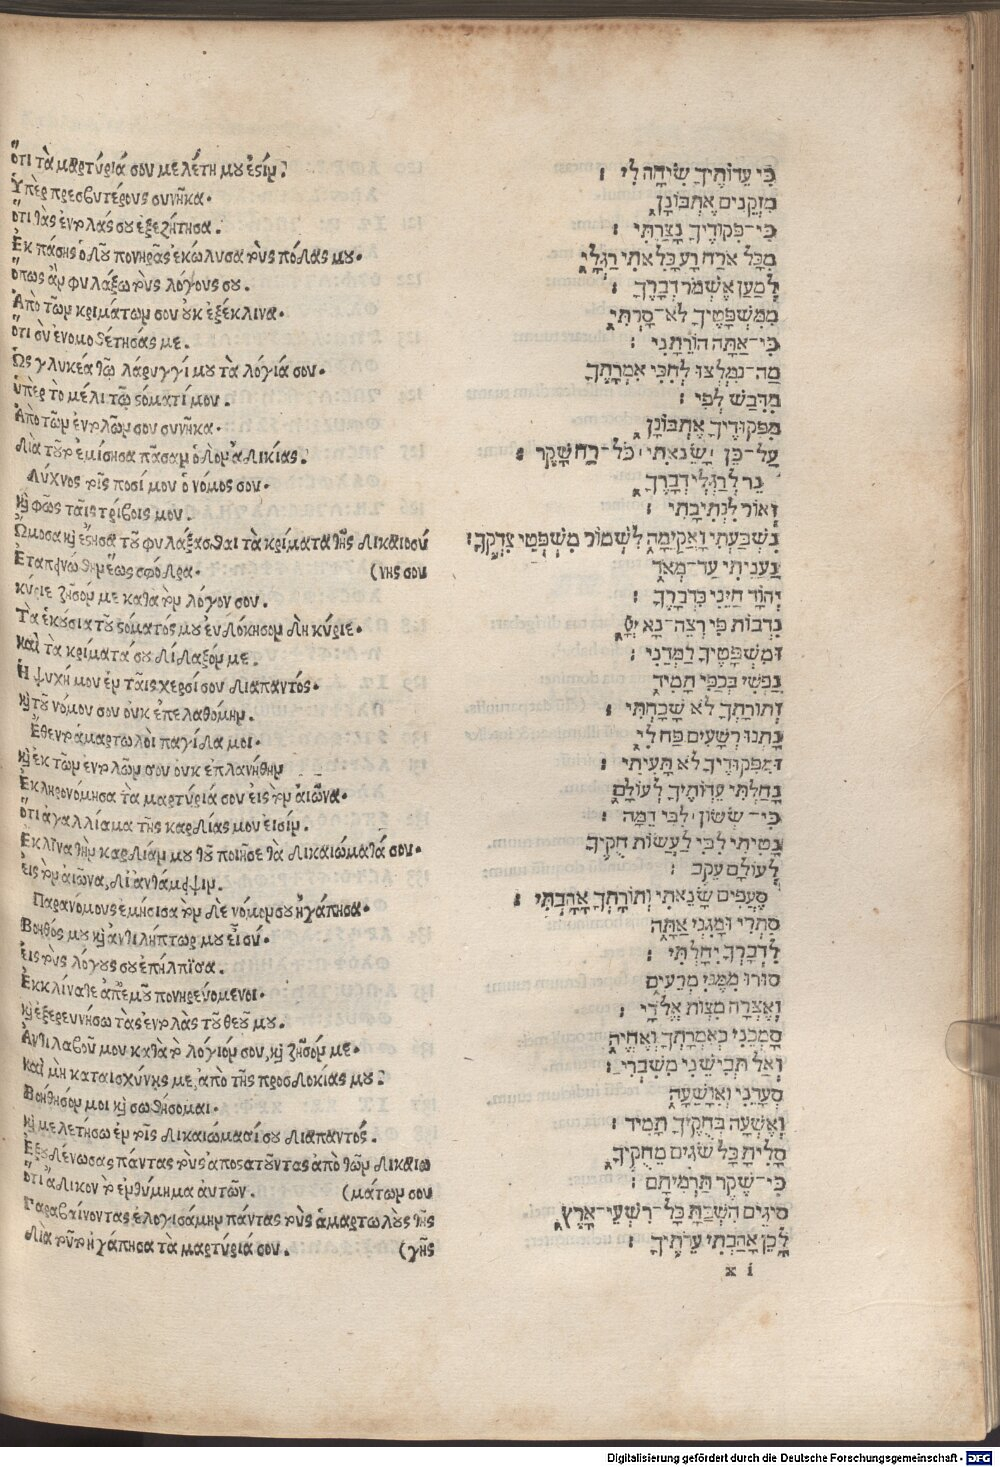 Ὅτι τὰ μαρτύριά σου μελέτη μου ἐστίν:
Ὑπὲρ πρεσβυτέρους συνῆκα.
Ὅτι τὰς ἐντολάς σου ἐξεζήτησα.
Ἐκ πάσης ὁδοῦ πονηρᾶς ἐκώλυσα τοὺς πόδας μου.
Ὅπως ἂν φυλάξω τοὺς λόγους σου.
Ἀπὸ τῶν κριμάτων σου οὐκ ἐξέκλινα.
Ὅτι σὺ ἐνομοθέτησάς με.
Ὡς γλυκέα τῷ λάρυγγί μου τὰ λόγιά σου.
ὑπὲρ τὸ μέλι τῷ στόματί μου.
Ἀπὸ τῶν ἐντολῶν σου συνῆκα.
Διὰ τοῦτο ἐμίσησα πᾶσαν ὁδὸν ἀδικίας:
Λύχνος τοῖς ποσί μου ὁ νόμος σου.
καὶ φῶς ταῖς τρίβοις μου.
Ὤμοσα καὶ ἔστησα τοῦ φυλάξασθαι τὰ κρίματα τῆς δικαιοσύ
Ἐταπεινώθην ἕως σφόδρα. (νης σου
κύριε ζῆσόν με κατὰ τὸν λόγον σου.
Τὰ ἑκούσια τοῦ στόματός μου εὐδόκησον δὴ κύριε.
καὶ τὰ κρίματά σου δίδαξόν με.
Ἡ ψυχή μου ἐν ταῖς χερσί σου διαπαντός.
καὶ τοῦ νόμου σου οὐκ ἐπελαθόμην.
Ἔθεντο ἁμαρτωλοὶ παγίδα μοι.
καὶ ἐκ τῶν ἐντολῶν σου οὐκ ἐπλανήθην
Ἐκληρονόμησα τὰ μαρτύριά σου εἰς τὸν αἰῶνα.
Ὅτι ἀγαλλίαμα τῆς καρδίας μου εἰσίν.
Ἔκλινα τὴν καρδίαν μου τοῦ ποιῆσαι τὰ δικαιώματά σου.
εἰς τὸν αἰῶνα, δι ἀντάμειψιν.
Παρανόμους ἐμίσισα τὸν δὲ νόμον σου ἠγάπησα.
Βοηθός μου καὶ ἀντιλήπτωρ μου εἶ σύ.
εἰς τοὺς λόγους σου ἐπήλπισα.
Ἐκκλίνατε ἀπ' ἐμοῦ πονηρευόμενοι.
καὶ ἐξερευνήσω τὰς ἐντολὰς τοῦ θεοῦ μου.
Ἀντιλαβοῦ μου κατὰ τὸ λόγιόν σου, καὶ ζῆσόν με.
καὶ μὴ καταισχύνῃς με, ἀπὸ τῆς προσδοκίας μου:
Βοήθησόν μοι καὶ σωθήσομαι.
καὶ μελετήσω ἐν τοῖς δικαιώμασί σου διαπαντός.
Ἐξουδένωσας πάντας τοὺς ἀποστατοῦντας ἀπὸ τῶν δικαιω
Ὅτι ἄδικον τὸ ἐνθύμημα αὐτῶν. (μάτων σου
Παραβαίνοντας ἐλογισάμην πάντας τοὺς ἁμαρτωλοὺς τῆς
Διὰ τοῦτο ἠγάπησα τὰ μαρτύριά σου. (γῆς
כִּי עֵדוֹתֶיךָ שִׂיחָה לִי :
מִזְּקֵנִים אֶתְבּוֹנָן
כִּי־פִקּוּדֶיךָ נָצָרְתִּי :
מִכָּל אֹרַח רָע כָּלִאתִי רַגְלָי
לְמַעַן אֶשְׁמֹר דְּבָרֶךָ :
מִמִּשְׁפָּטֶיךָ לֹא־סָרְתִּי
כִּי־אַתָּה הוֹרֵתָנִי :
מַה־נִּמְלְצוּ לְחִכִּי אִמְרָתֶךָ
מִדְּבַשׁ לְפִי :
מִפִּקּוּדֶיךָ אֶתְבּוֹנָן
עַל־כֵּן שָׂנֵאתִי כָּל־אֹרַח שָׁקֶר :
נֵר לְרַגְלִי דְבָרֶךָ
וְאוֹר לִנְתִיבָתִי :
נִשְׁבַּעְתִּי וָאֲקַיֵּמָה לִשְׁמוֹר מִשְׁפְּטֵי צִדְקֶךָ :
נַעֲנֵיתִי עַד־מְאֹד
יְהוָֹה חַיֵּנִי כִדְבָרֶךָ :
נִדְבוֹת פִּי רְצֵה־נָא יְיָ
וּמִשְׁפָּטֶיךָ לַמְּדֵנִי :
נַפְשִׁי בְכַפִּי תָמִיד
וְתוֹרָתְךָ לֹא שָׁכָחְתִּי :
נָתְנוּ רְשָׁעִים פַּח לִי
וּמִפִּקּוּדֶיךָ לֹא תָעִיתִי :
נָחַלְתִּי עֵדוֹתֶיךָ לְעוֹלָם
כִּי־שְׂשׂוֹן לִבִּי הֵמָּה :
נָטִיתִי לִבִּי לַעֲשׂוֹת חֻקֶּיךָ
לְעוֹלָם עֵקֶב :
סֵעֲפִים שָׂנֵאתִי וְתוֹרָתְךָ אָהָבְתִּי :
סִתְרִי וּמָגִנִּי אַתָּה
לִדְבָרְךָ יִחָלְתִּי :
סוּרוּ מִמֶּנִּי מְרֵעִים
וְאֶצְּרָה מִצְוֹת אֱלֹהָי :
סָמְכֵנִי כְאִמְרָתְךָ וְאֶחְיֶה
וְאַל תְּבִישֵׁנִי מִשִּׂבְרִי :
סְעָדֵנִי וְאִוָּשֵׁעָה
וְאֶשְׁעָה בְחֻקֶּיךָ תָמִיד :
סָלִיתָ כָּל שׁוֹגִים מֵחֻקֶּיךָ
כִּי־שֶׁקֶר תַּרְמִיתָם :
סִיגִים הִשְׁבַּתָּ כָל־רִשְׁעֵי־אָרֶץ
לָכֵן אָהַבְתִּי עֵדֹתֶיךָ :
x i
Digitalisierung gefördert durch die Deutsche Forschungsgemeinschaft - DFG